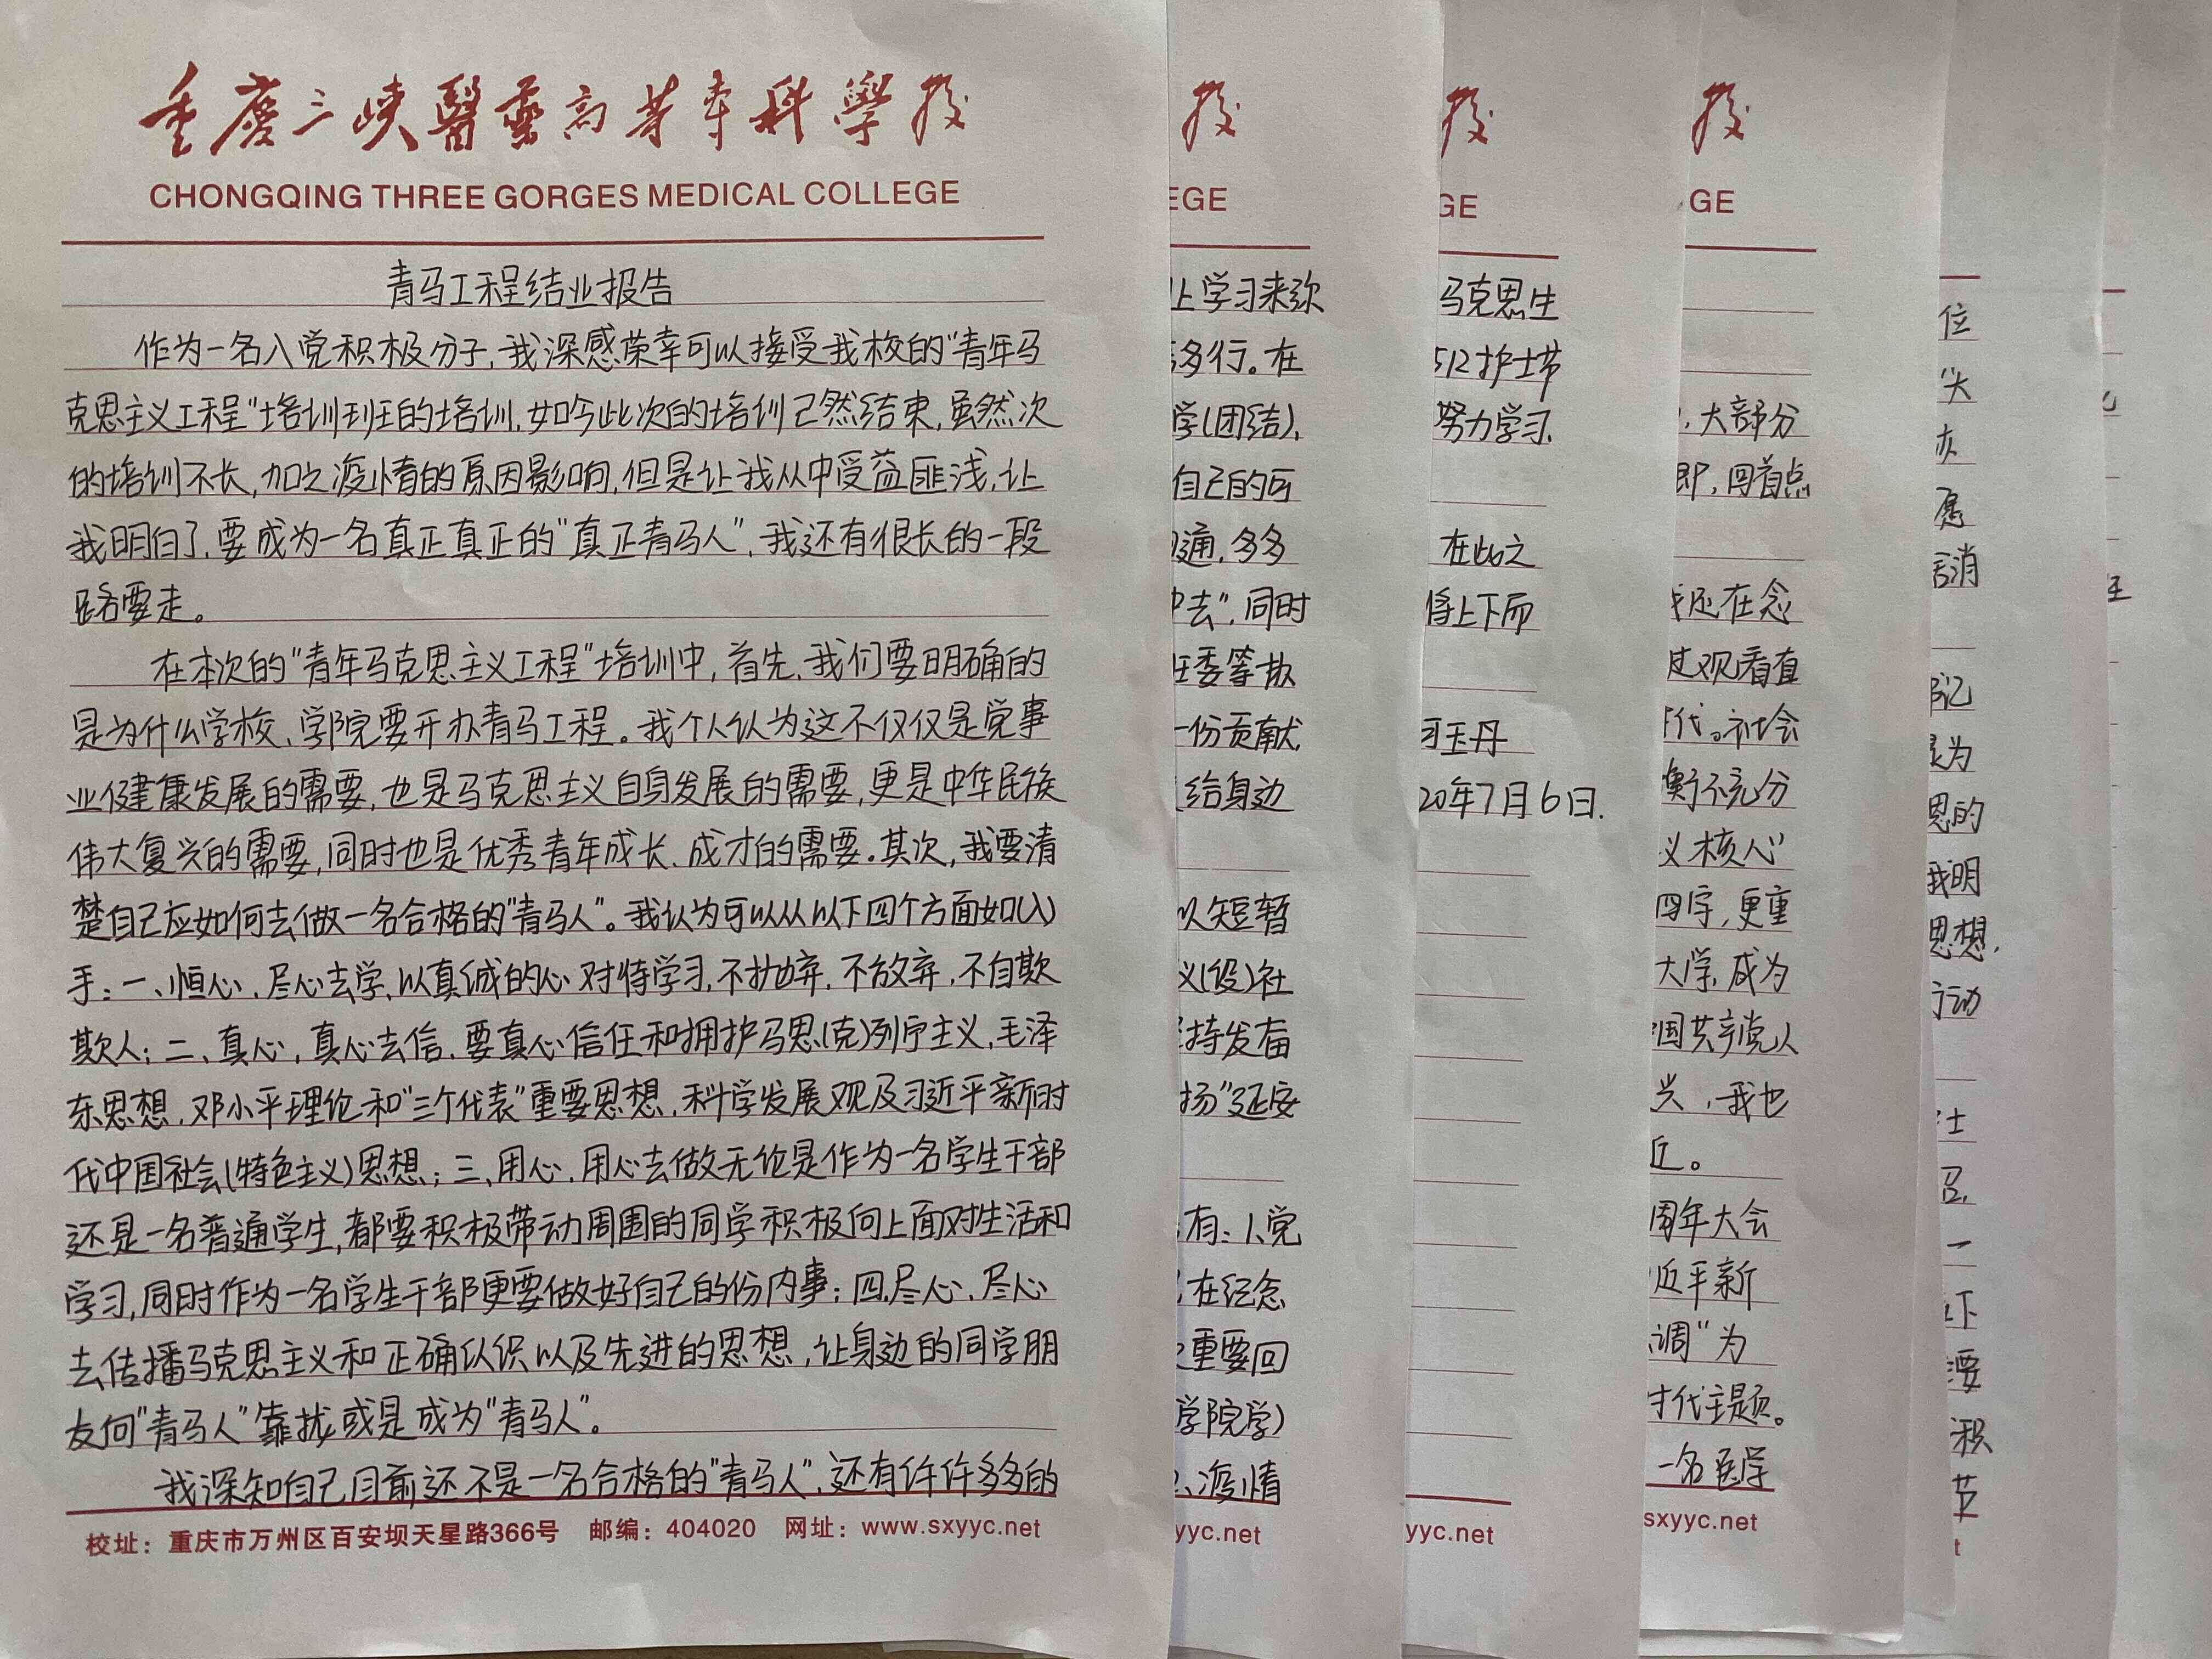 重慶三峡醫藥高等專科學校
CHONGQING THREE GORGES MEDICAL COLLEGE
青马工程结业报告
作为一名入党积极分子,我深感荣幸可以接受我校的"青年马
克思主义工程"培训班的培训,如今此次的培训已然结束,虽然次
的培训不长,加之疫情的原因影响,但是让我从中受益匪浅,让
我明白了,要成为一名真正真正的"真正青马人",我还有很长的一段
路要走。
在本次的"青年马克思主义工程"培训中,首先,我们要明确的
是为什么学校、学院要开办青马工程。我个人认为这不仅仅是党事
业健康发展的需要,也是马克思主义自身发展的需要,更是中华民族
伟大复兴的需要,同时也是优秀青年成长、成才的需要.其次,我要清
楚自己应如何去做一名合格的"青马人"。我认为可以从以下四个方面如(入)
手:一、恒心、尽心去学,以真诚的心对待学习,不抛弃、不放弃,不自欺
欺人;二、真心,真心去信,要真心信任和拥护马思(克)列宁主义,毛泽
东思想,邓小平理论和"三个代表"重要思想,科学发展观及习近平新时
代中国社会(特色主义)思想;三、用心,用心去做无论是作为一名学生干部
还是一名普通学生,都要积极带动周围的同学积极向上面对生活和
学习,同时作为一名学生干部更要做好自己的份内事;四.尽心、尽心
去传播马克思主义和正确认识以及先进的思想,让身边的同学朋
友向"青马人"靠拢或是成为"青马人"。
我深知自己目前还不是一名合格的"青马人",还有许许多多的
校址：重庆市万州区百安坝天星路366号 邮编：404020 网址：www.sxyyc.net
校
EGE
上学习来弥
多行。在
学(团结),
自己的可
通,多多
去",同时
委等散
一份贡献,
给身边
以短暂
义(设)社
持发奋
扬"延安
有:1、党
在纪念
重要回
学院学)
、疫情
yyc.net
校
GE
马克思生
512护士节
努力学习,
在此之
将上下而
玉丹
20年7月6日.
yyc.net
校
GE
,大部分
即,回首点
还在念
过观看直
代。社会
衡不充分
义核心"
四字,更重
大学,成为
国共产党人
兴,我也
近。
周年大会
近平新
调"为
时代主题。
一名医学
sxyyc.net
位
"头
愿
消
记
为
思的
我明
思想,
行动
士
一
下
要
积
t